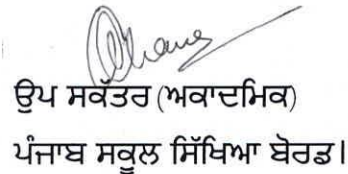 ਉਪ ਸਕੱਤਰ (ਅਕਾਦਮਿਕ)
ਪੰਜਾਬ ਸਕੂਲ ਸਿੱਖਿਆ ਬੋਰਡ।